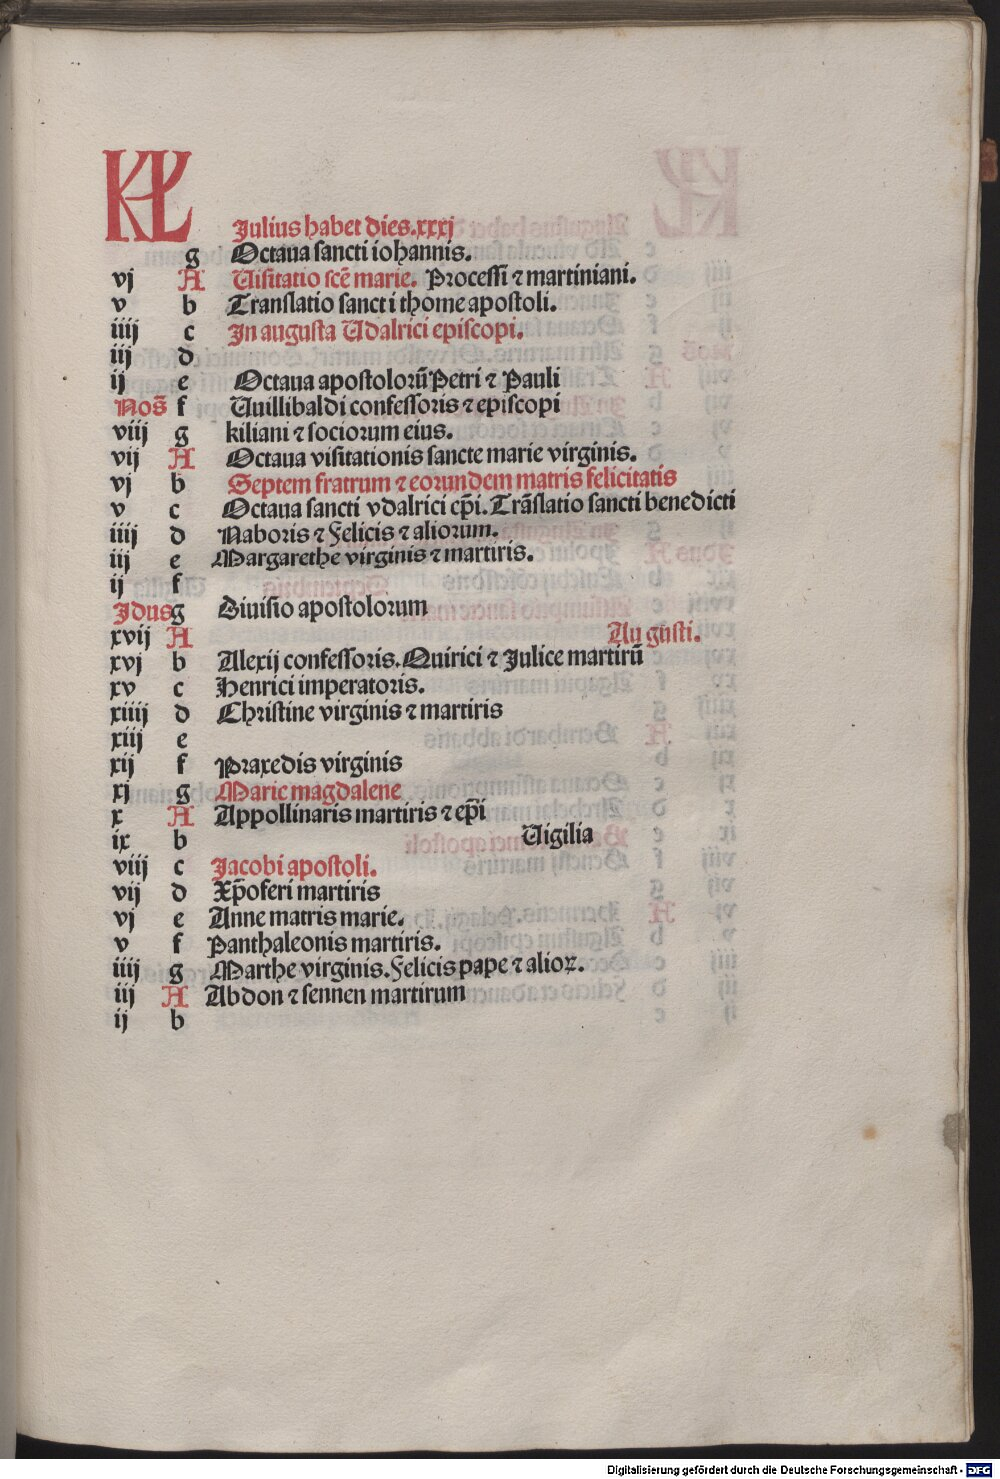 KL
Julius habet dies.xxxj
g Octaua sancti iohannis.
vj A Uisitatio scē marie. Processi ⁊ martiniani.
v b Translatio sancti thome apostoli.
iiij c In augusta Udalrici episcopi.
iij d
ij e Octaua apostolorū Petri ⁊ Pauli
Nos̄ f Wuillibaldi confessoris ⁊ episcopi
viij g kiliani ⁊ sociorum eius.
vij A Octaua visitationis sancte marie virginis.
vj b Septem fratrum ⁊ eorundem matris felicitatis
v c Octaua sancti vdalrici ep̄i. Trāslatio sancti benedicti
iiij d Naboris ⁊ Felicis ⁊ aliorum.
iij e Margarethe virginis ⁊ martiris.
ij f
Jdus g Diuisio apostolorum
xvij A Augusti.
xvj b Alexij confessoris. Quirici ⁊ Julice martirū
xv c Henrici imperatoris.
xiiij d Christine virginis ⁊ martiris
xiij e
xij f Praxedis virginis
xj g Marie magdalene
x A Appollinaris martiris ⁊ ep̄i
ix b Uigilia
viij c Jacobi apostoli.
vij d Xp̄oferi martiris
vj e Anne matris marie.
v f Panthaleonis martiris.
iiij g Marthe virginis. Felicis pape ⁊ alioꝝ.
iij A Abdon ⁊ sennen martirum
ij b
Digitalisierung gefördert durch die Deutsche Forschungsgemeinschaft - DFG